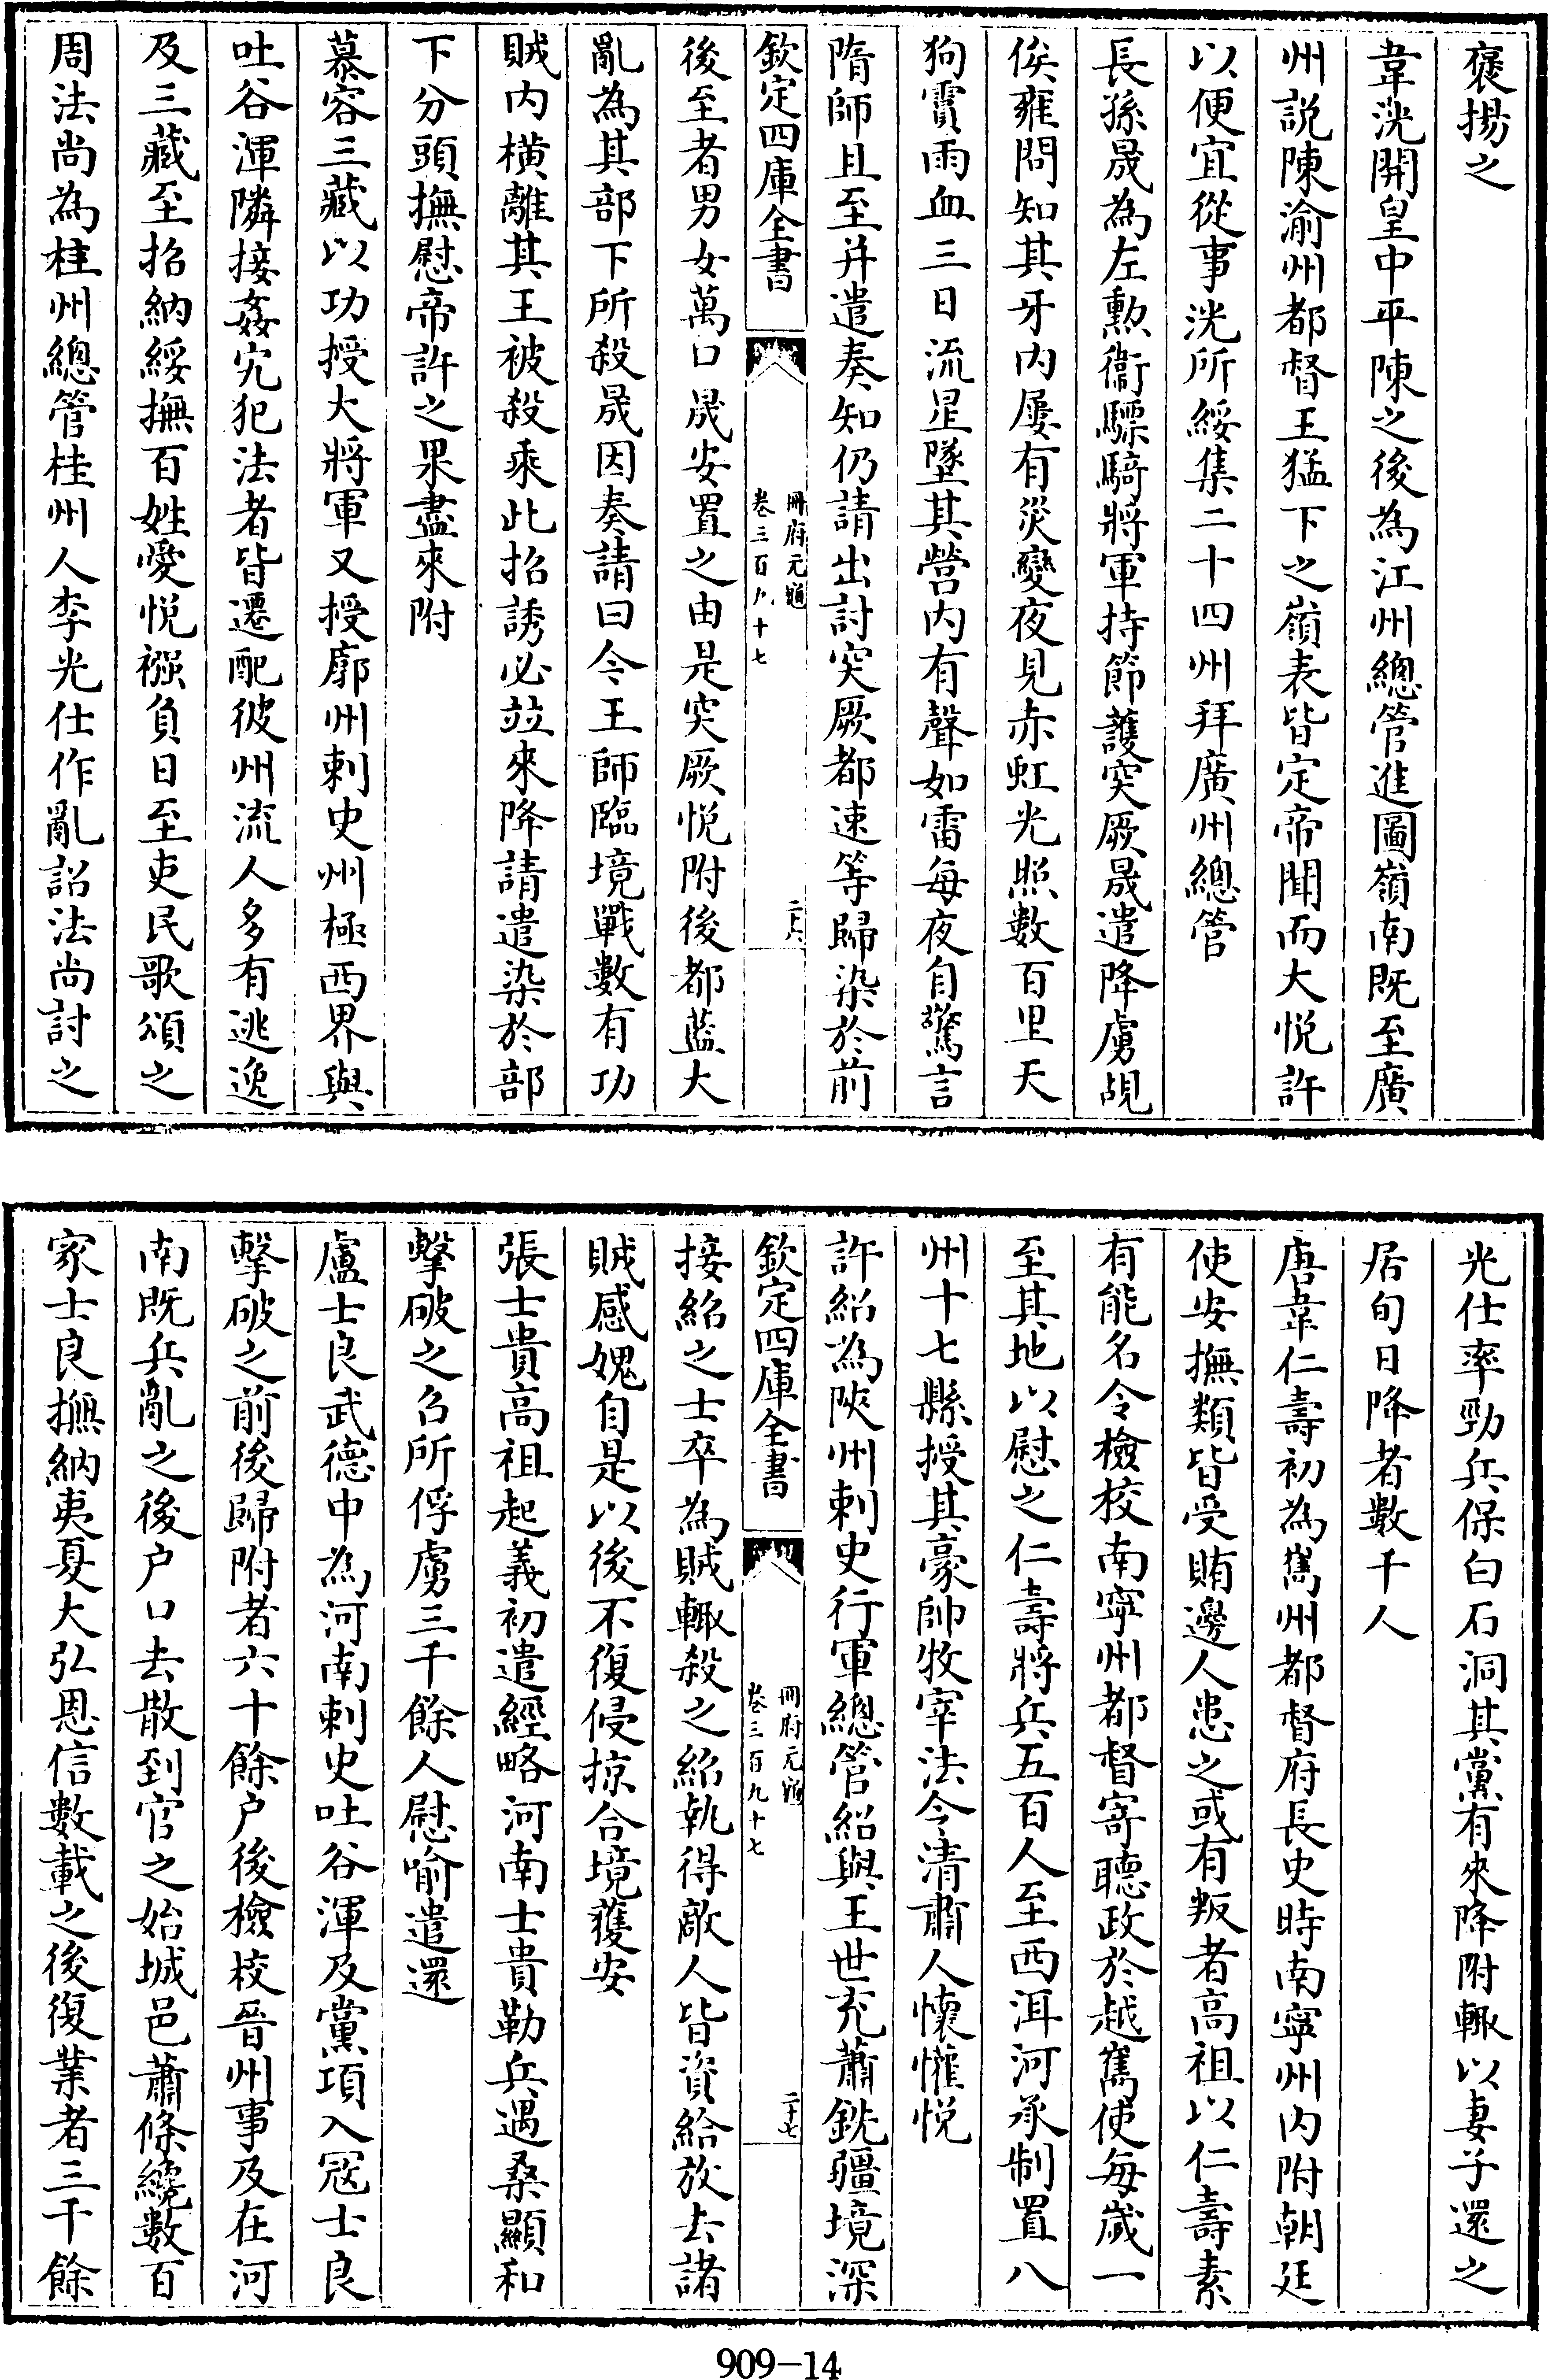 褒揚之
韋洸開皇中平陳之後為江州總管進圖嶺南既至廣
州説陳渝州都督王猛下之嶺表皆定帝聞而大悦許
以便宜從事洸所綏集二十四州拜廣州總管
長孫晟為左勲衞驃騎將軍持節護突厥晟遣降虜覘
候雍問知其牙内屢有災變夜見赤虹光照數百里天
狗霣雨血三日流星墜其營内有聲如雷每夜自驚言
隋師且至并遣奏知仍請出討突厥都速等歸染於前
欽定四庫全書
冊府元龜
卷三百九十七
二十六
後至者男女萬口晟安置之由是突厥悦附後都藍大
亂為其部下所殺晟因奏請曰今王師臨境戰數有功
賊内横離其王被殺乘此招誘必竝來降請遣染於部
下分頭撫慰帝許之果盡來附
慕容三藏以功授大將軍又授廓州刺史州極西界與
吐谷渾隣接姦宄犯法者皆遷配彼州流人多有逃逸
及三藏至招納綏撫百姓愛悦襁負日至吏民歌頌之
周法尚為桂州總管桂州人李光仕作亂詔法尚討之
光仕率勁兵保白石洞其黨有來降附輒以妻子還之
居旬日降者數千人
唐韋仁壽初為嶲州都督府長史時南寧州内附朝廷
使安撫類皆受賄邊人患之或有叛者高祖以仁壽素
有能名令檢校南寧州都督寄聽政於越嶲使每歲一
至其地以慰之仁壽將兵五百人至西洱河承制置八
州十七縣授其豪帥牧宰法令清肅人懷懽悦
許紹為陝州刺史行軍總管紹與王世充蕭銑疆境深
欽定四庫全書
冊府元龜
卷三百九十七
二十七
接紹之士卒為賊輒殺之紹執得敵人皆資給放去諸
賊感媿自是以後不復侵掠合境獲安
張士貴高祖起義初遣經略河南士貴勒兵遇桑顯和
擊破之名所俘虜三千餘人慰喻遣還
盧士良武德中為河南刺史吐谷渾及黨項入冦士良
擊破之前後歸附者六十餘户後檢校晉州事及在河
南既兵亂之後户口去散到官之始城邑蕭條纔數百
家士良撫納夷夏大弘恩信數載之後復業者三千餘
909-14